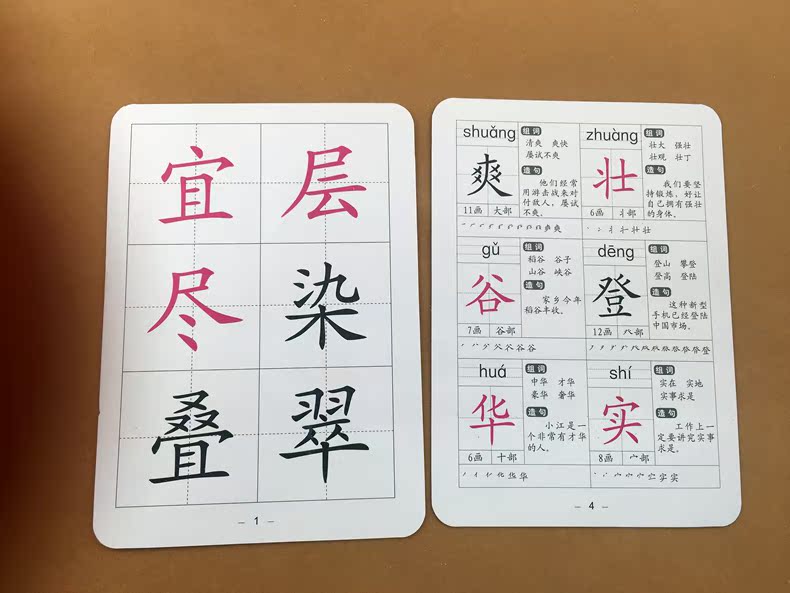 宜 层
尽 染
叠 翠
– 1 –
shuǎng
爽
11画 大部
组词
清爽 爽快
屡试不爽
造句
他们经常
用游击战来对
付敌人，屡试
不爽。
zhuàng
壮
6画 丬部
组词
壮大 强壮
壮观 壮丁
造句
我们要坚
持锻炼，好让
自己拥有强壮
的身体。
gǔ
谷
7画 谷部
组词
稻谷 谷子
山谷 峡谷
造句
家乡今年
稻谷丰收。
dēng
登
12画 癶部
组词
登山 攀登
登高 登陆
造句
这种新型
手机已经登陆
中国市场。
huá
华
6画 十部
组词
中华 才华
豪华 奢华
造句
小江是一
个非常有才华
的人。
shí
实
8画 宀部
组词
实在 实地
实事求是
造句
工作上一
定要讲究实事
求是。
– 4 –